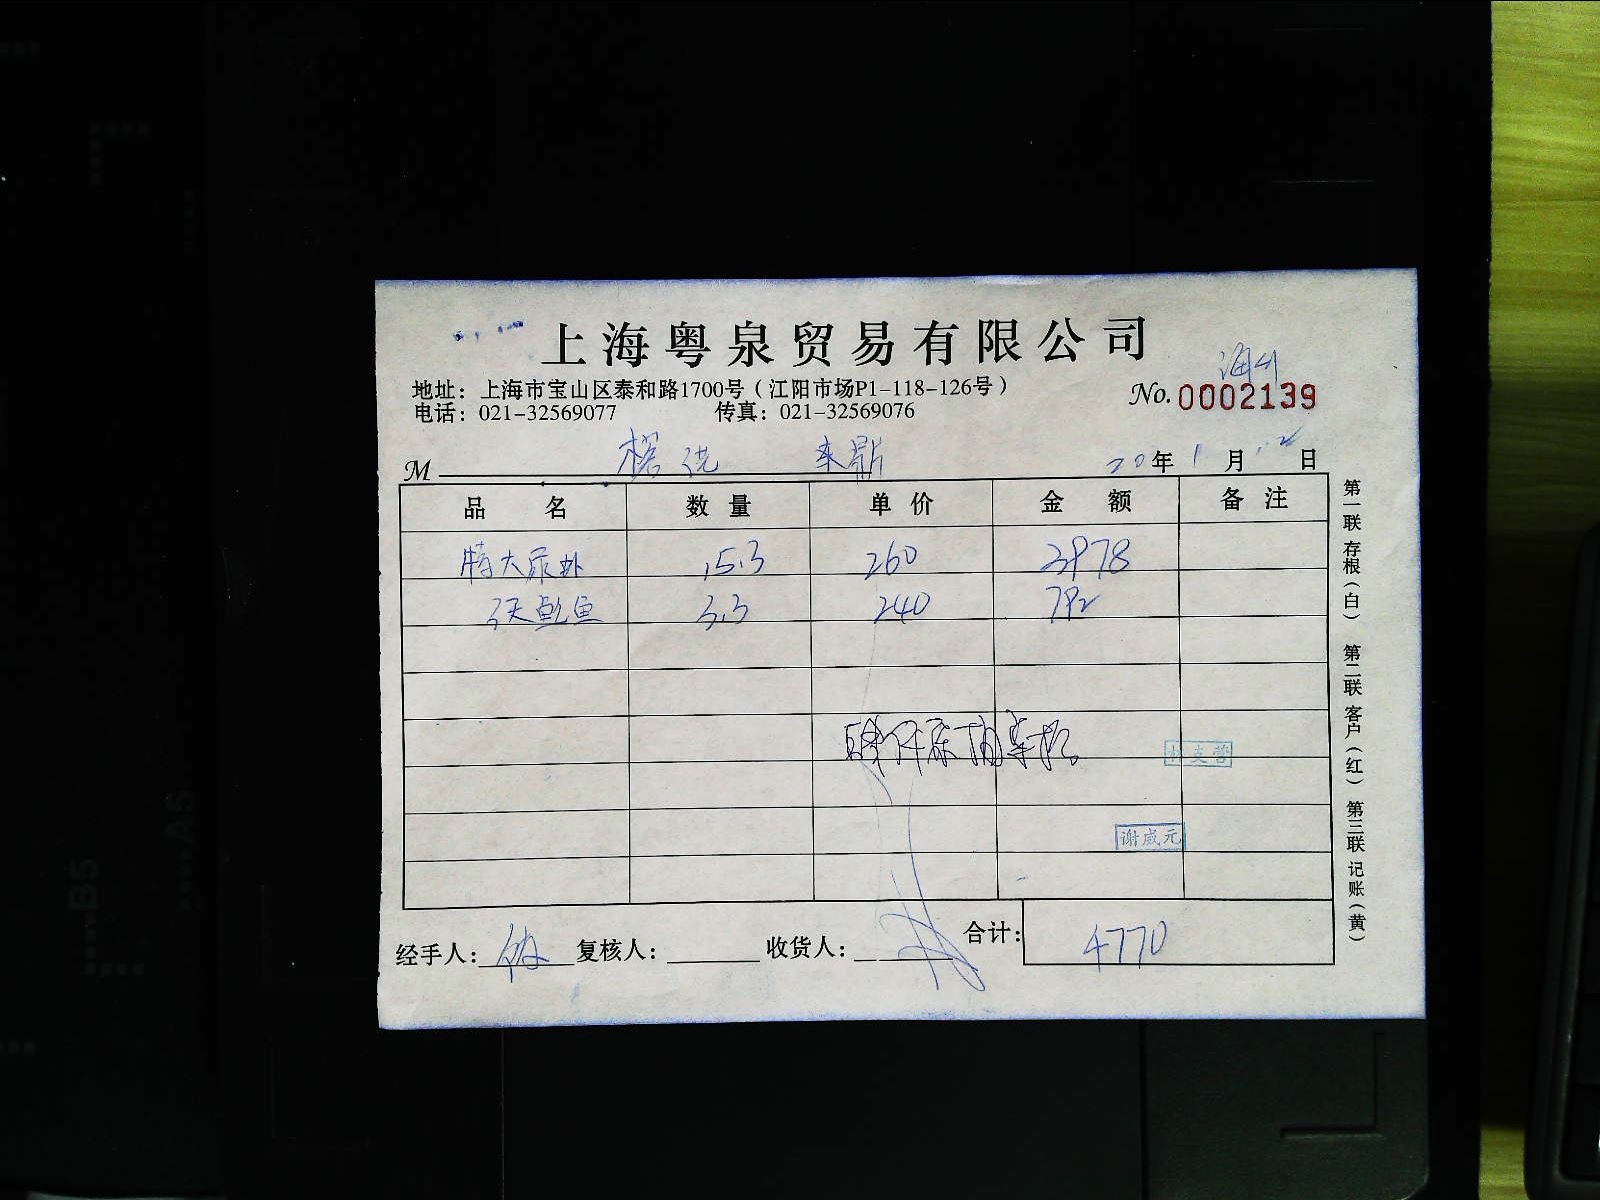 上海粤泉贸易有限公司
地址：上海市宝山区泰和路1700号（江阳市场P1-118-126号）
No. 0002139
电话：021-32569077 传真：021-32569076
M
20年1月12日
品名 数量 单价 金额 备注
特大尿虾 15.3 260 3978
3天鱼 3.3 240 792
谢咸元
经手人： 复核人： 收货人： 合计： 4770
第一联 存根（白） 第二联 客户（红） 第三联 记账（黄）
B5
A5